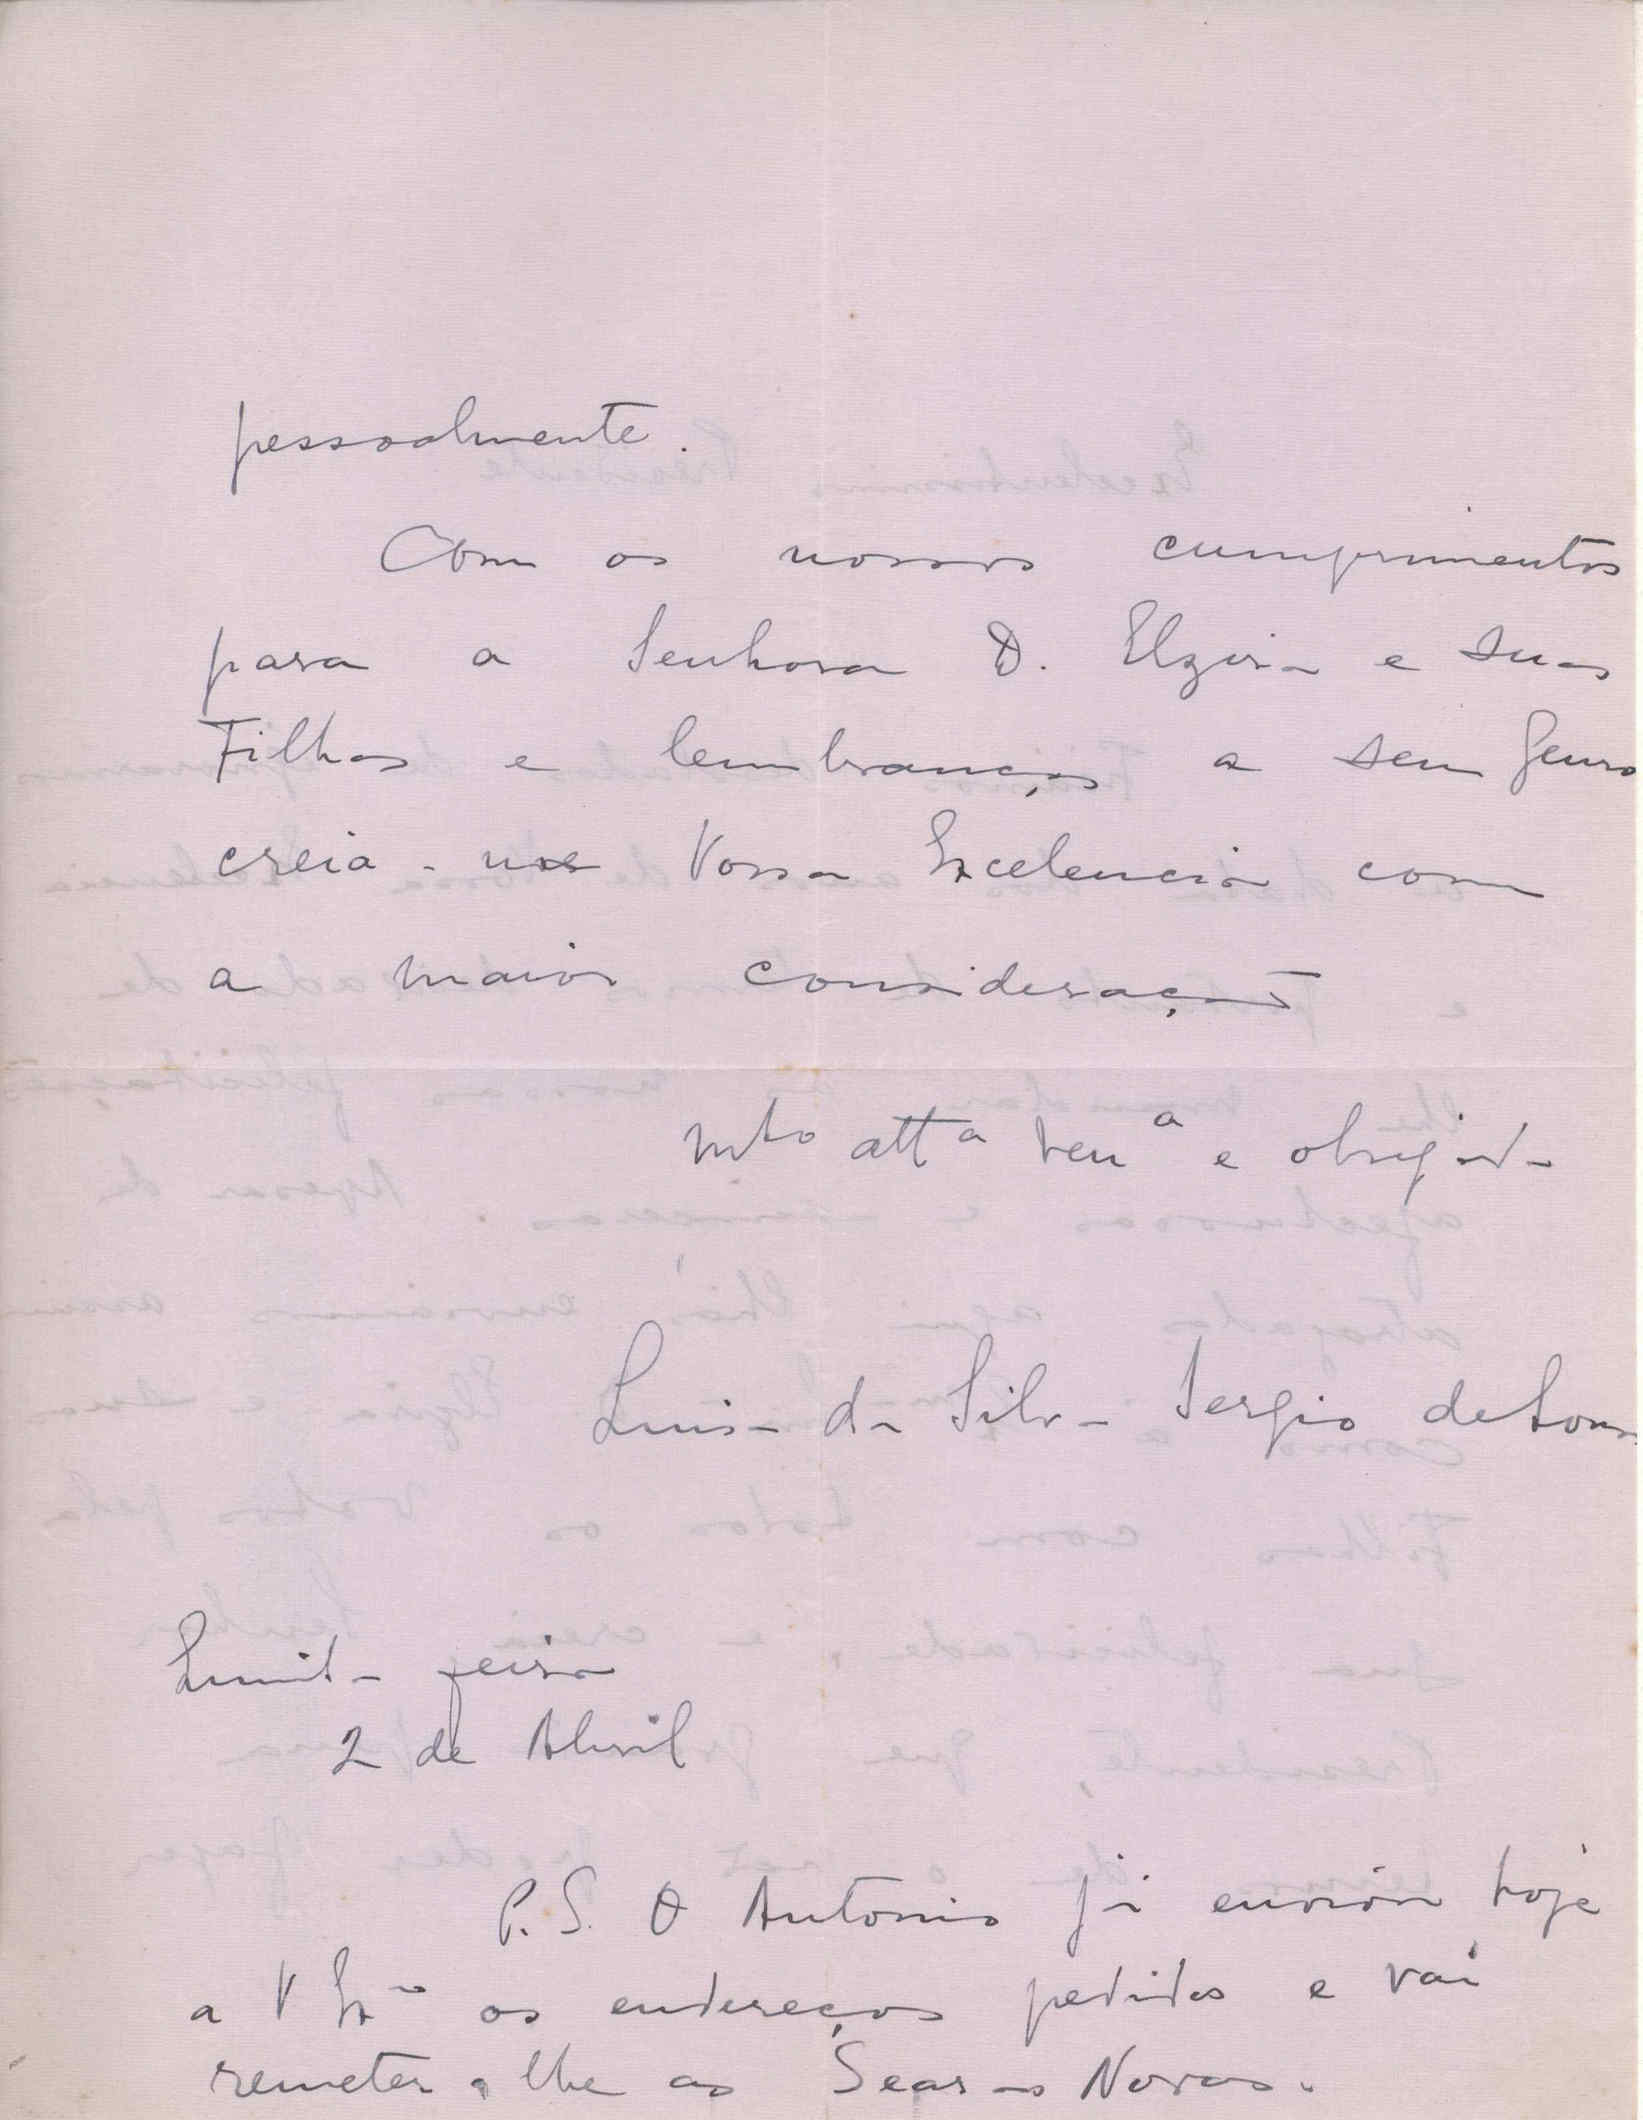 pessoalmente.
Com os nossos cumprimentos
para a Senhora D. Elzira e suas
Filhas e lembranças a seu Genro
creia-nos Vossa Excelencia com
a maior consideração
mto atta vena e obrigada
Luisa da Silva Sergio de Sousa
feira
2 de Abril
P.S. O Antonio já enviou hoje
a V Exa os endereços pedidos e vai
remeter-lhe as Searas Novas.